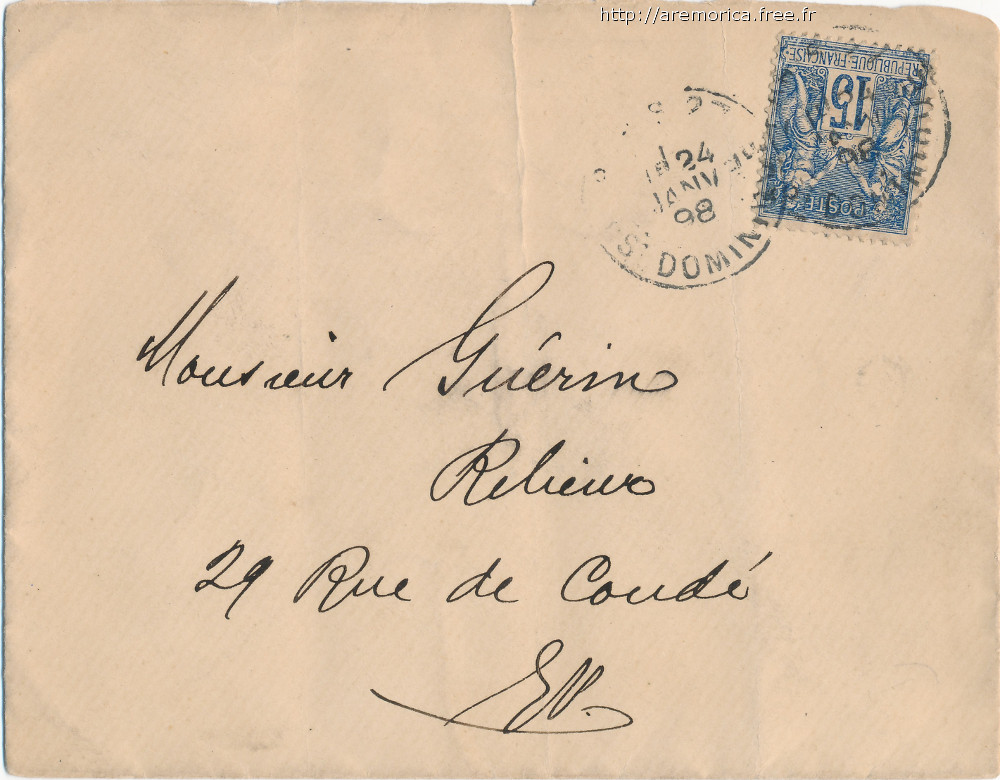 http://aremorica.free.fr
REPUBLIQUE FRANÇAISE
15
POSTE
24
JANV
98
ST DOMIN
Monsieur Guérin
Relieur
29 Rue de Condé
EV.